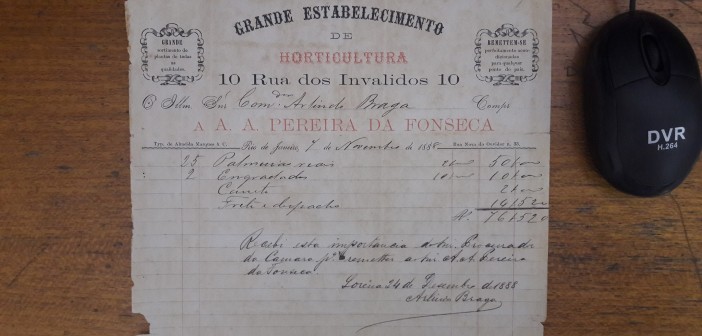 GRANDE ESTABELECIMENTO
DE
HORTICULTURA
10 Rua dos Invalidos 10
GRANDE
sortimento de
plantas de todas
as
qualidades.
REMETTEM-SE
perfeitamente acon-
dicionadas
para qualquer
ponto do paiz.
O Illm. Snr. Comdor Arlindo Braga Compr
A A. A. PEREIRA DA FONSECA
Typ. de Almeida Marques & C. Rio de Janeiro, 7 de Novembro de 1888
25 Palmeiras reais 2$000 50$000
2 Engradados 10$000
Carreto 2$000
Frete e despacho 14$520
Rs. 76$520
Recebi esta importancia do Snr. Procurador
da Camara pa. remetter ao Snr. A. A. Pereira
da Fonseca
Lorena 24 de Dezembro de 1888
Arlindo Braga
DVR
H.264